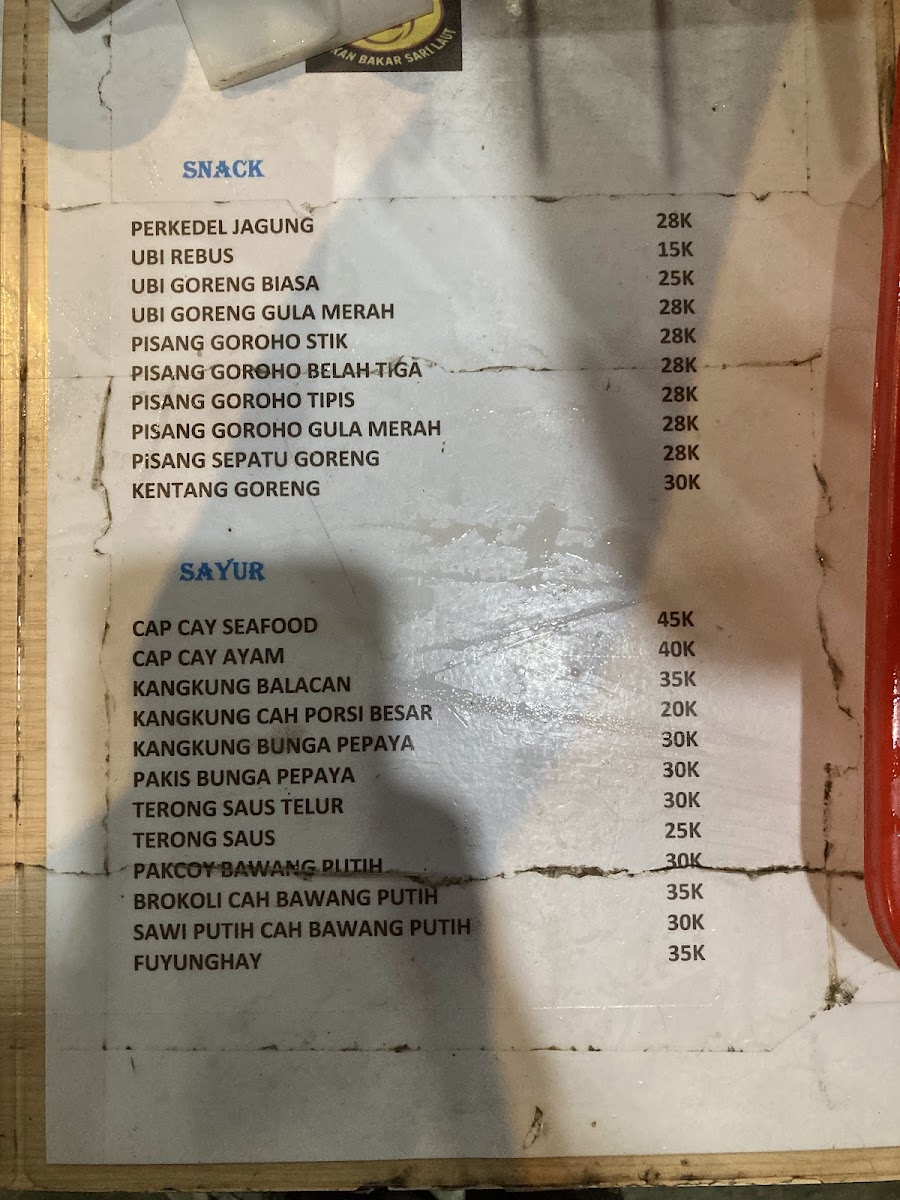 KAN BAKAR SARI LAUT
SNACK
PERKEDEL JAGUNG 28K
UBI REBUS 15K
UBI GORENG BIASA 25K
UBI GORENG GULA MERAH 28K
PISANG GOROHO STIK 28K
PISANG GOROHO BELAH TIGA 28K
PISANG GOROHO TIPIS 28K
PISANG GOROHO GULA MERAH 28K
PiSANG SEPATU GORENG 28K
KENTANG GORENG 30K
SAYUR
CAP CAY SEAFOOD 45K
CAP CAY AYAM 40K
KANGKUNG BALACAN 35K
KANGKUNG CAH PORSI BESAR 20K
KANGKUNG BUNGA PEPAYA 30K
PAKIS BUNGA PEPAYA 30K
TERONG SAUS TELUR 30K
TERONG SAUS 25K
PAKCOY BAWANG PUTIH 30K
BROKOLI CAH BAWANG PUTIH 35K
SAWI PUTIH CAH BAWANG PUTIH 30K
FUYUNGHAY 35K